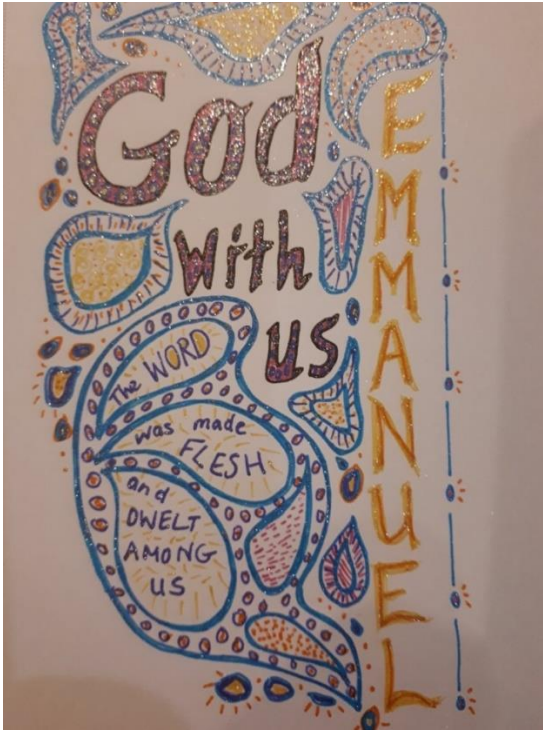 God
with
us
EMMANUEL
The WORD
was made
FLESH
and
DWELT
AMONG
us